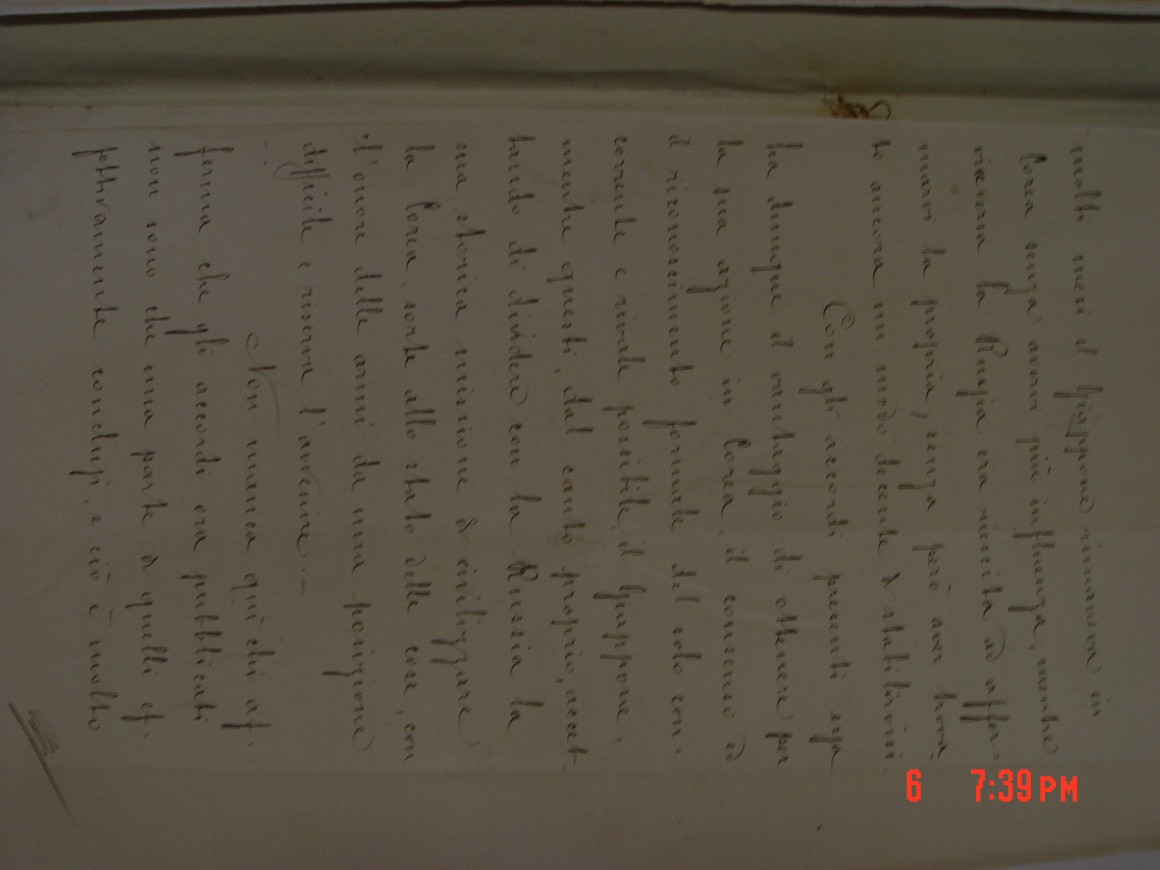 molti mesi il Giappone rimaneva in
Corea senza avervi più influenza, mentre
viceversa la Russia era riuscita ad affer-
marvi la propria, senza però aver trova-
to ancora un modo decente di stabilirvisi.
Con gli accordi presenti essa
ha dunque il vantaggio di ottenere per
la sua azione in Corea, il consenso ed
il riconoscimento formale del solo con-
corrente e rivale possibile, il Giappone,
mentre questi, dal canto proprio, accet-
tando di dividere con la Russia la
sua storica missione di civilizzare
la Corea, sorte allo stato delle cose, con
l'onore delle armi da una posizione
difficile e riserva l'avvenire. –
Non manca quì chi af-
ferma che gli accordi ora pubblicati
non sono che una parte di quelli ef-
fettivamente conclusi, e ciò è molto
6 7:39 PM